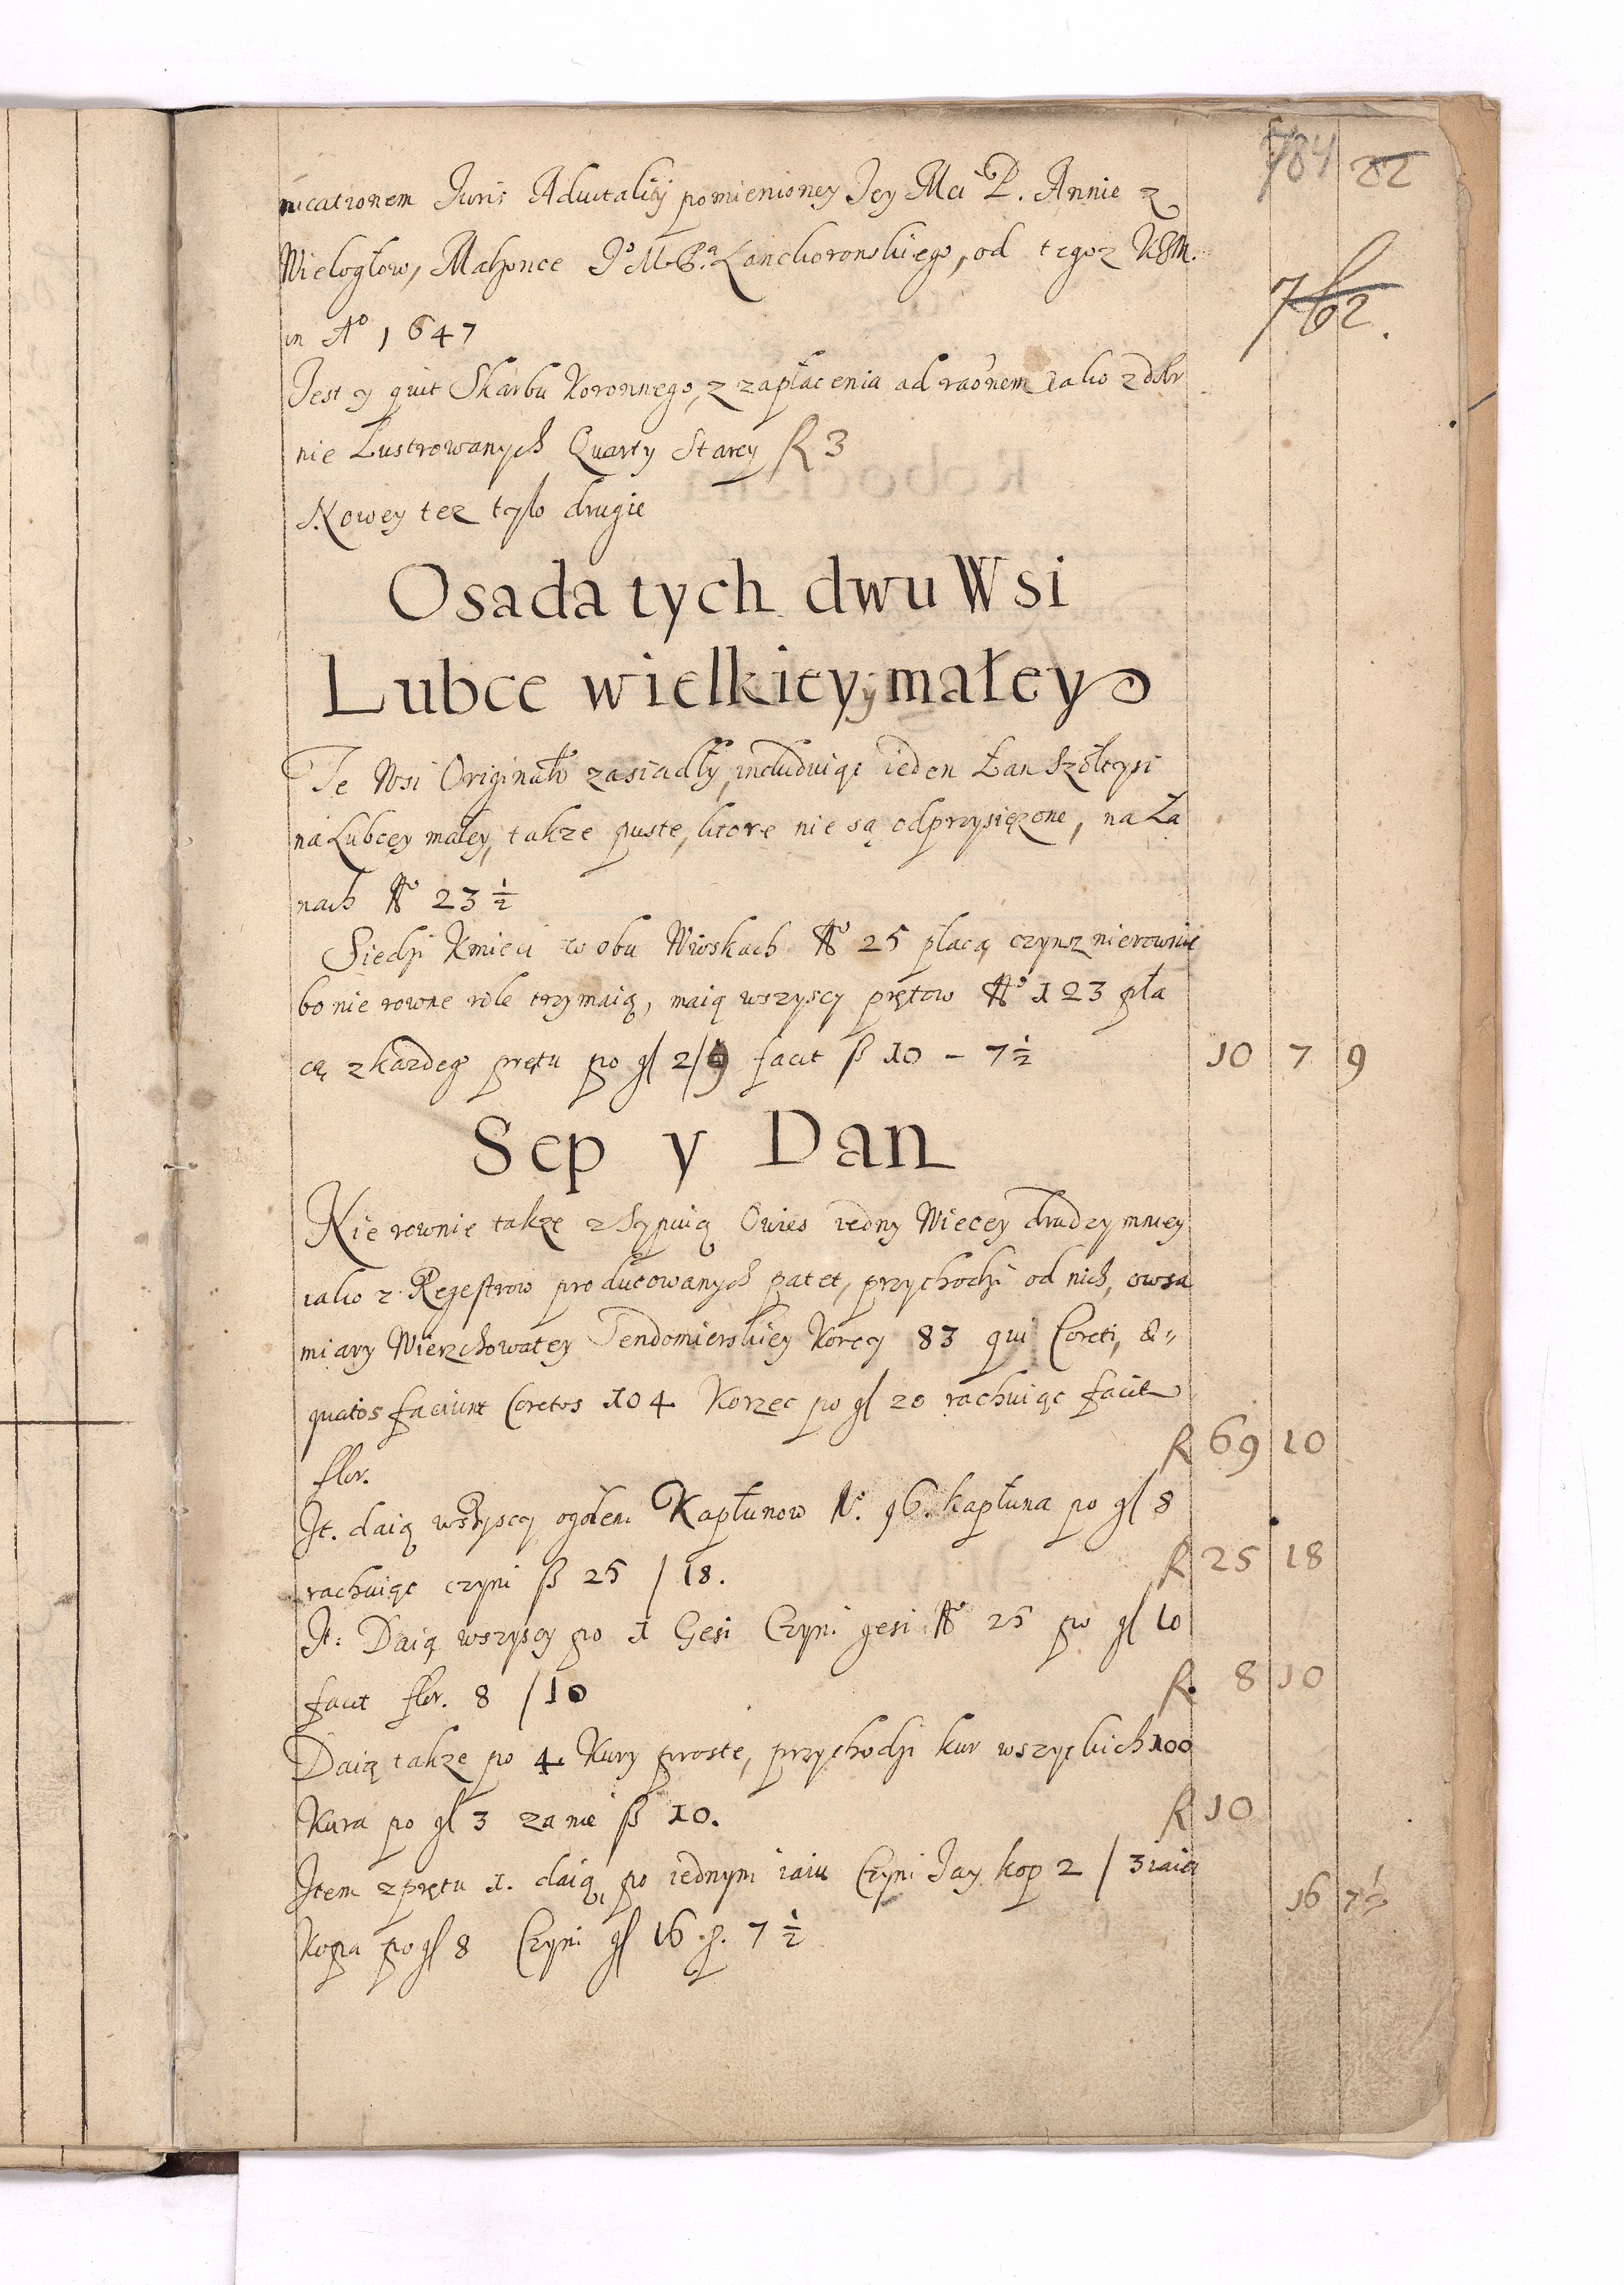 784 22
nicationem Juris Aduitality pomienioney Jey Mci P. Annie z
Wielogłow, Małzonce Jº M P.ª Lanckoronskiego, od tegoz KJM.
762.
in Aº 1647
Jest y quit Skarbu Koronnego, z zapłacenia ad raõnem iako z dobr
nie Lustrowanych Quarty Starey R 3
Nowey tez tylo drugie
Osada tych dwu Wsi
Lubce wielkiey y małey
Te Wsi Originalr zasiadły, includuiąc ieden Łan Szołtysi
na Lubcey małey, takze puste, ktore nie są odprzysięzone, na Ła
nach Nº 23 ½
Siedzi Kmieci w obu Wioskach Nº 25 płacą czynsz nierownie
bo nie rowne role trzymaią, maią wszyscy prętow Nº 123 pła
cą z kazdego prętu po gł 2/9 facit ß 10 – 7 ½ 10 7 9
Sep y Dan
Nie rownie takze zsypuią Owies iedny Wiecey drudzy mniey
iako z Regestrow producowanych patet, przychodzi od nich, owsa
miary Wierzchowatey Sendomierskiey Korcy 83 qui Coreti, &
quatos faciunt Coretos 104 Korzec po gł 20 rachuiąc facit
flor. R 69 10
It. daią wszyscy ogołem Kapłunow N. 96. kapłuna po gł 8
rachuiąc czyni ß 25 / 18. R 25 18
It: Daią wszyscy po 1 Gesi Czyni gesi Nº 25 po gł 10
facit flor. 8 / 10 R 8 10
Daią takze po 4 Kury proste, przychodzi kur wszyckich 100
Kura po gł 3 za nie ß 10. R 10
Item z prętu 1. daią po iednym iaiu Czyni Jay kop 2 / 3 iaia
Kopa po gł 8 Czyni gł 16 .d. 7 ½ 16 7½